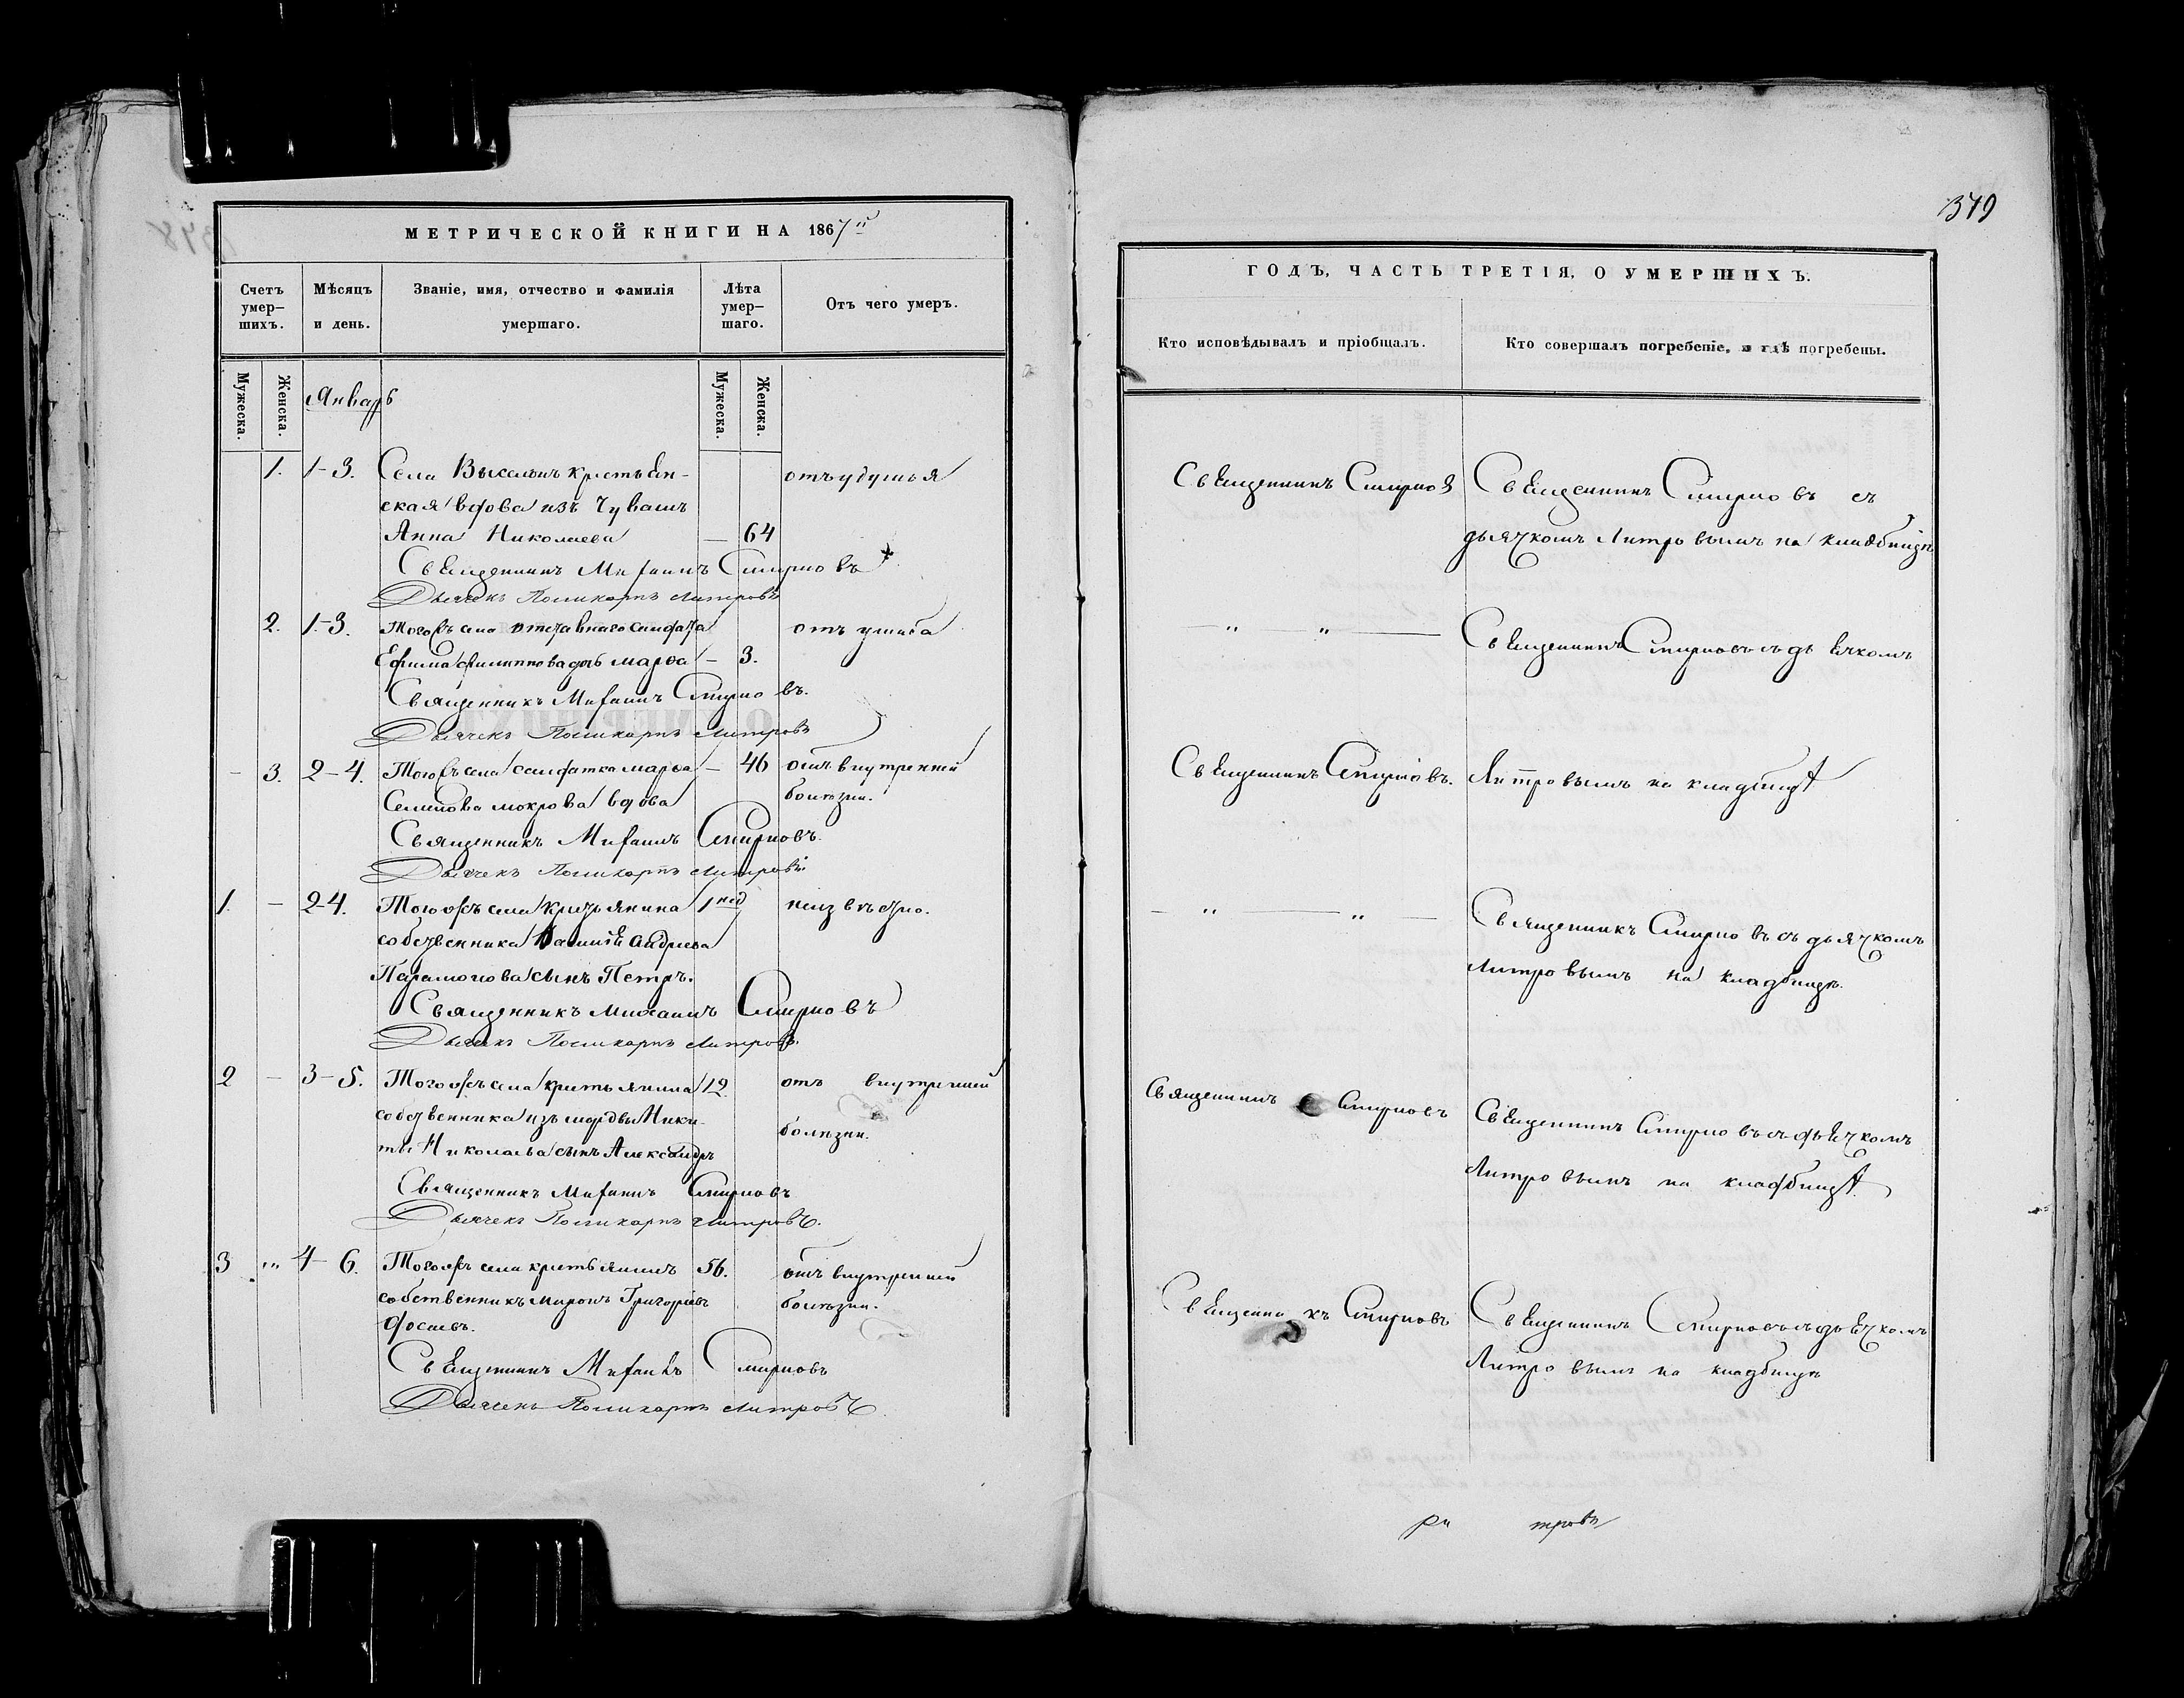 МЕТРИЧЕСКОЙ КНИГИ НА 1867й
Счетъ умер-
шихъ.
Мѣсяцъ
и день.
Званіе, имя, отчество и фамилія
умершаго.
Лѣта
умер-
шаго.
Отъ чего умеръ.
Мужеска.
Женска.
Январь
Мужеска.
Женска.
1. 1-3. Села крестьян- отъ удушья
ская вдова изъ Чувашъ
Анна Николаева — 64
Священникъ Михаилъ Смирновъ
Дьячекъ Поликарпъ Литровъ
2. 1-3. Тогожъ села отставнаго солдата отъ
Ефима Филиппова дочь Марѳа — 3.
Священникъ Михаилъ Смирновъ.
Дьячекъ Поликарпъ Литровъ
— 3. 2-4. Тогожъ села солдатка Марѳа — 46 отъ внутренней
Семенова Мокрова вдова болѣзни.
Священникъ Михаилъ Смирновъ.
Дьячекъ Поликарпъ Литровъ.
1. — 2-4. Тогожъ села крестьянина 1 нед неизвѣстно.
собственника Андреева
Парамонова сынъ Петръ.
Священникъ Михаилъ Смирновъ
Дьячекъ Поликарпъ Литровъ.
2 — 3-5. Тогожъ села крестьянина 12. отъ внутренней
собственника изъ мордвы Ники- болѣзни.
ты Николаева сынъ Александръ
Священникъ Михаилъ Смирновъ
Дьячекъ Поликарпъ Литровъ.
3 „ 4-6. Тогожъ села крестьянинъ 56. отъ внутренней
собственникъ Миронъ Григорьевъ болѣзни.
Священникъ Михаилъ Смирновъ
Дьячекъ Поликарпъ Литровъ
379
ГОДЪ, ЧАСТЬ ТРЕТІЯ, О УМЕРШИХЪ.
Кто исповѣдывалъ и пріобщалъ.
Кто совершалъ погребеніе, и гдѣ погребены.
Священникъ Смирновъ Священникъ Смирновъ съ
дьячкомъ Литровымъ на кладбищѣ
— „ — „ — Священникъ Смирновъ съ дьячкомъ
Священникъ Смирновъ. Литровымъ на кладбищѣ
— „ — „ — Священникъ Смирновъ съ дьячкомъ
Литровымъ на кладбищѣ.
Священникъ Смирновъ Священникъ Смирновъ съ дьячкомъ
Литровымъ на кладбищѣ.
Священникъ Смирновъ Священникъ Смирновъ съ дьячкомъ
Литровымъ на кладбищѣ